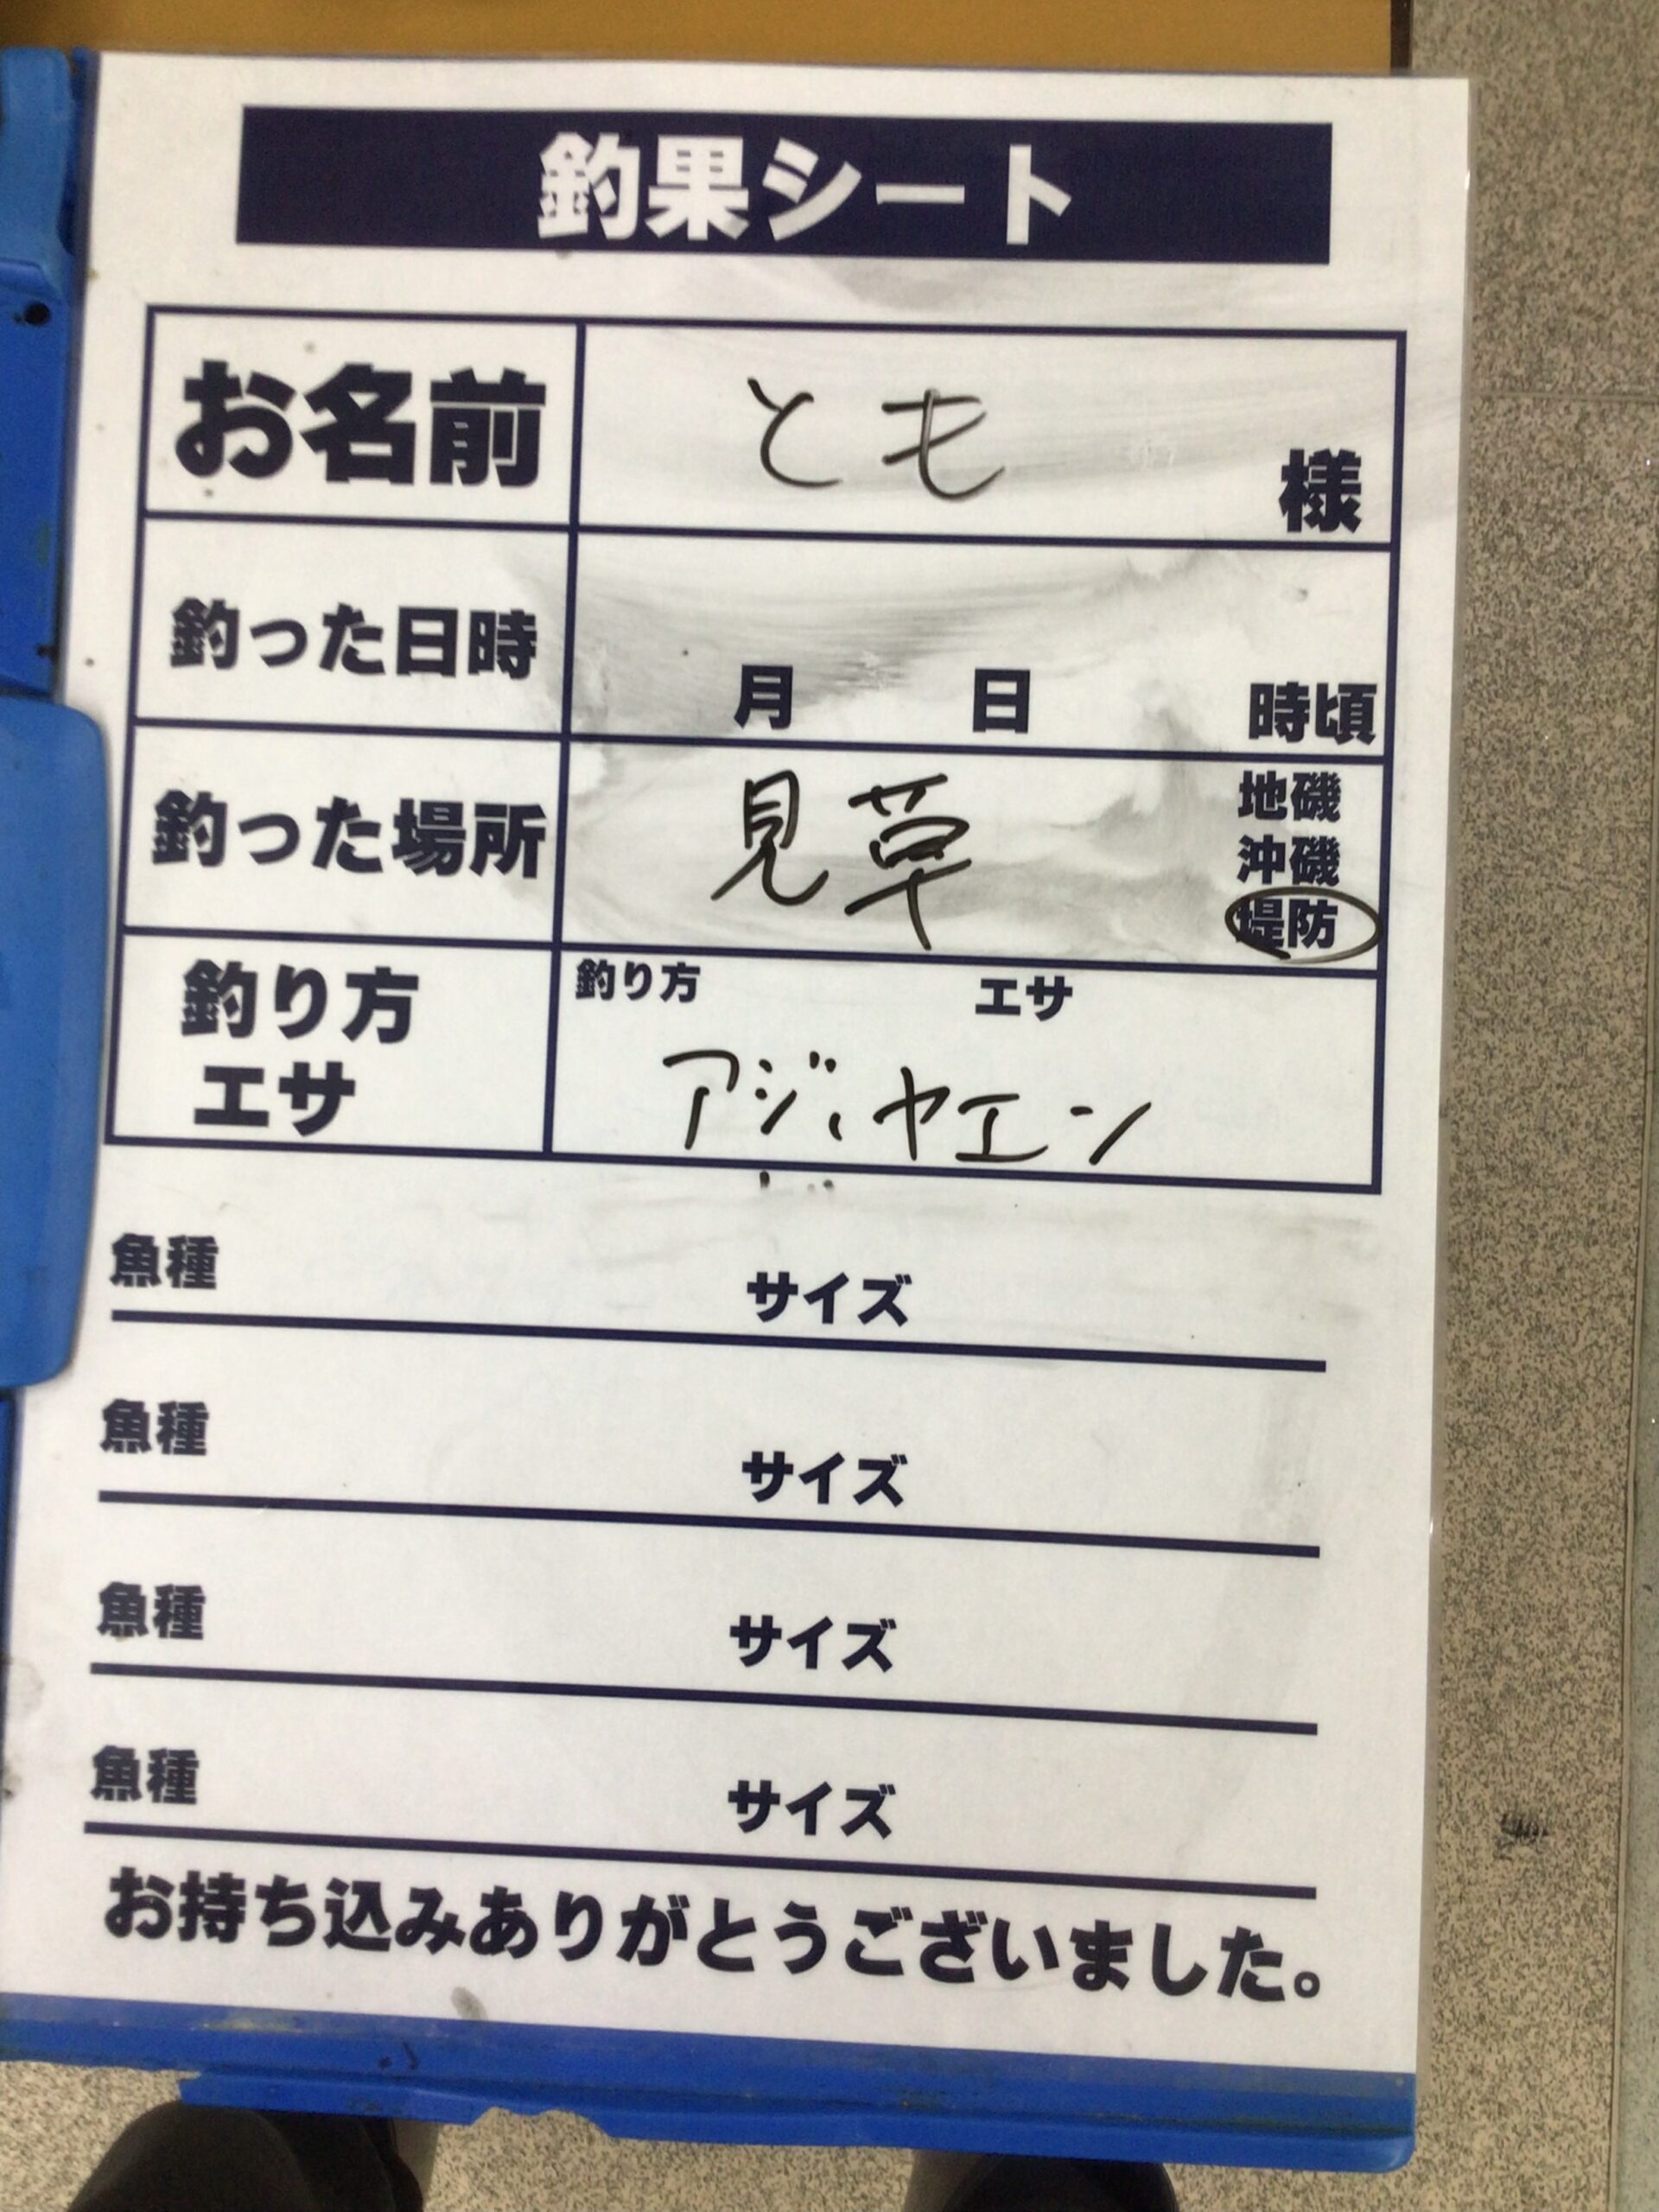 釣果シート
お名前 とも 様
釣った日時 月 日 時頃
釣った場所 見草 地磯
沖磯
堤防
釣り方 エサ
釣り方
エサ
アジ、ヤエン
魚種 サイズ
魚種 サイズ
魚種 サイズ
魚種 サイズ
お持ち込みありがとうございました。